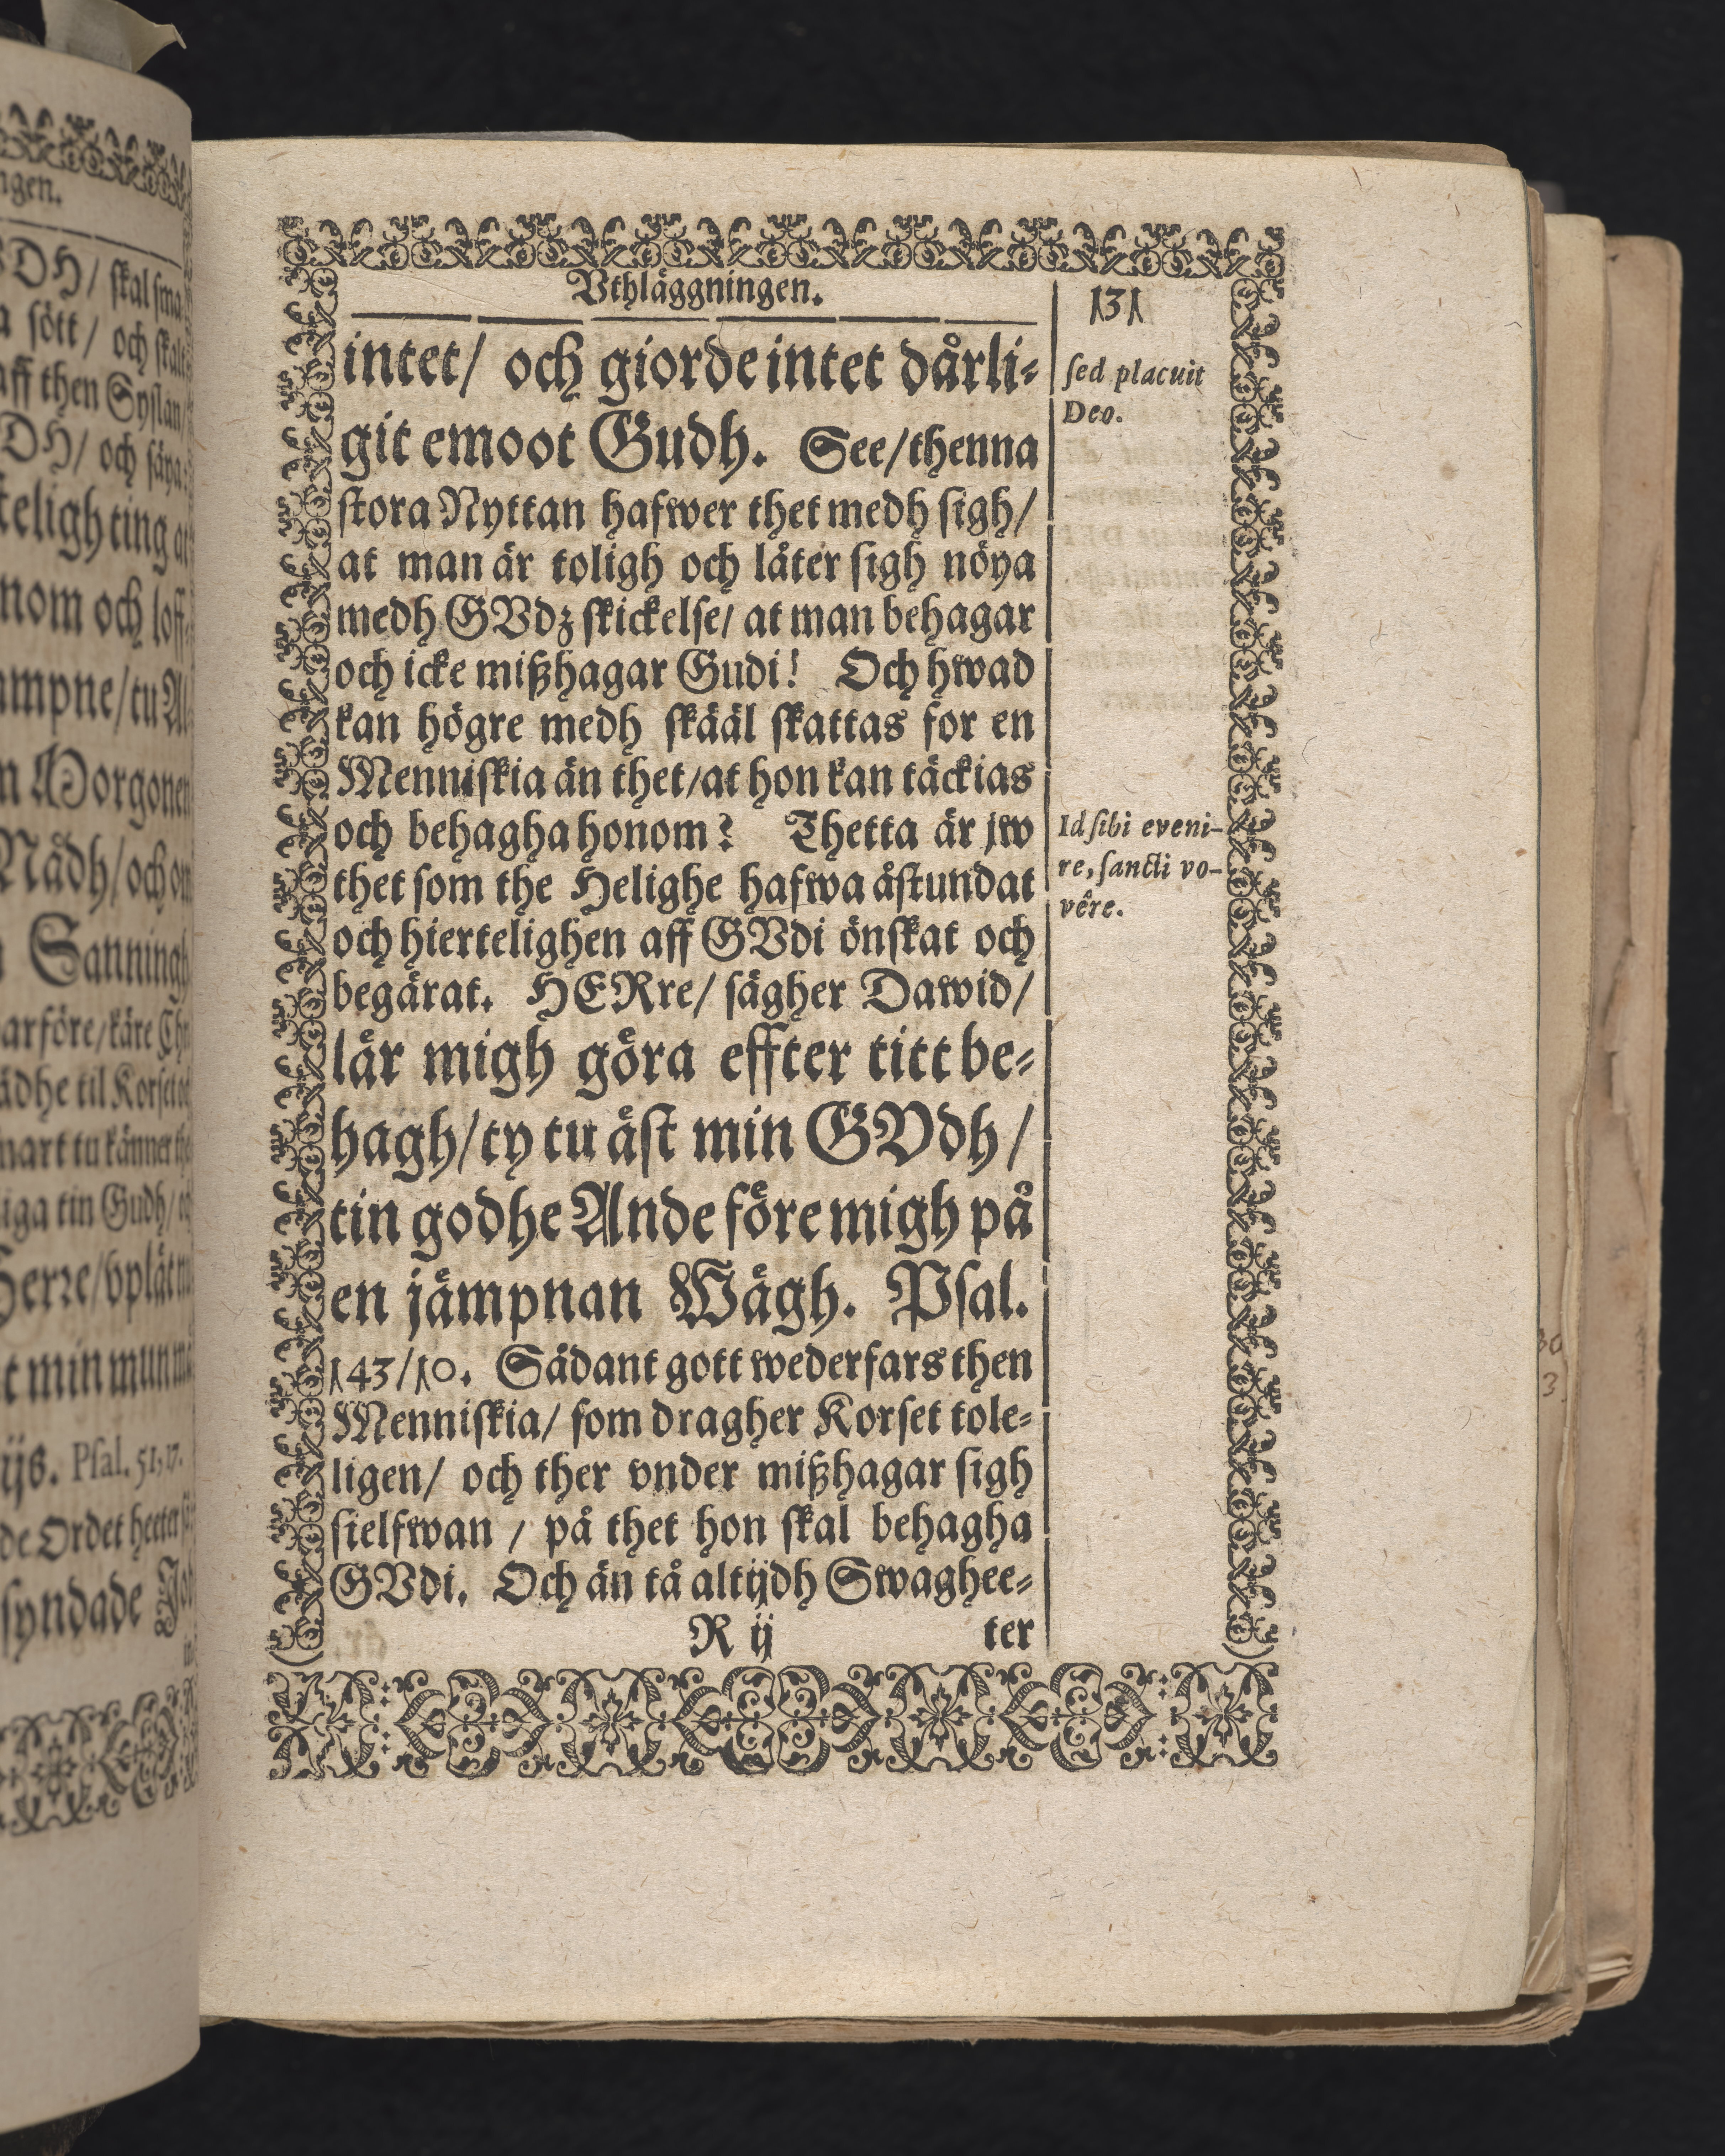 ngen.
VDH/ skal sma
a sött/ och skalt
aff then Syslan/
DH/ och säya:
teligh ting at
nom och loff-
ampne/tu Al
n Morgonen
Nådh/och om
Sanningh
arföre/käre Chr
nart tu känner the
iga tin Gudh/
Herre/vplåt
t min munn
ijs. Psal. 51, 17.
de Ordet heeter
syndade
Vthläggningen.
131
intet/ och giorde intet dårli-
git emoot Gudh. See/thenna
stora Nyttan hafwer thet medh sigh/
at man är toligh och låter sigh nöya
medh GVdz skickelse/ at man behagar
och icke mißhagar Gudi! Och hwad
kan högre medh skääl skattas for en
Menniskia än thet/at hon kan täckias
och behagha honom? Thetta är jw
thet som the Helighe hafwa åstundat
och hiertelighen aff GVdi önskat och
begärat. HERre/ sägher Dawid/
lär migh göra effter titt be-
hagh/ty tu äst min GVdh/
tin godhe Ande före migh på
en jämpnan Wägh. Psal.
143/10. Sådant gott wederfars then
Menniskia/ som dragher Korset tole-
ligen/ och ther vnder mißhagar sigh
sielfwan / på thet hon skal behagha
GVdi. Och än tå altijdh Swaghee-
R ij ter
sed placuit
Deo.
Id sibi eveni-
re, sancti vo-
vêre.